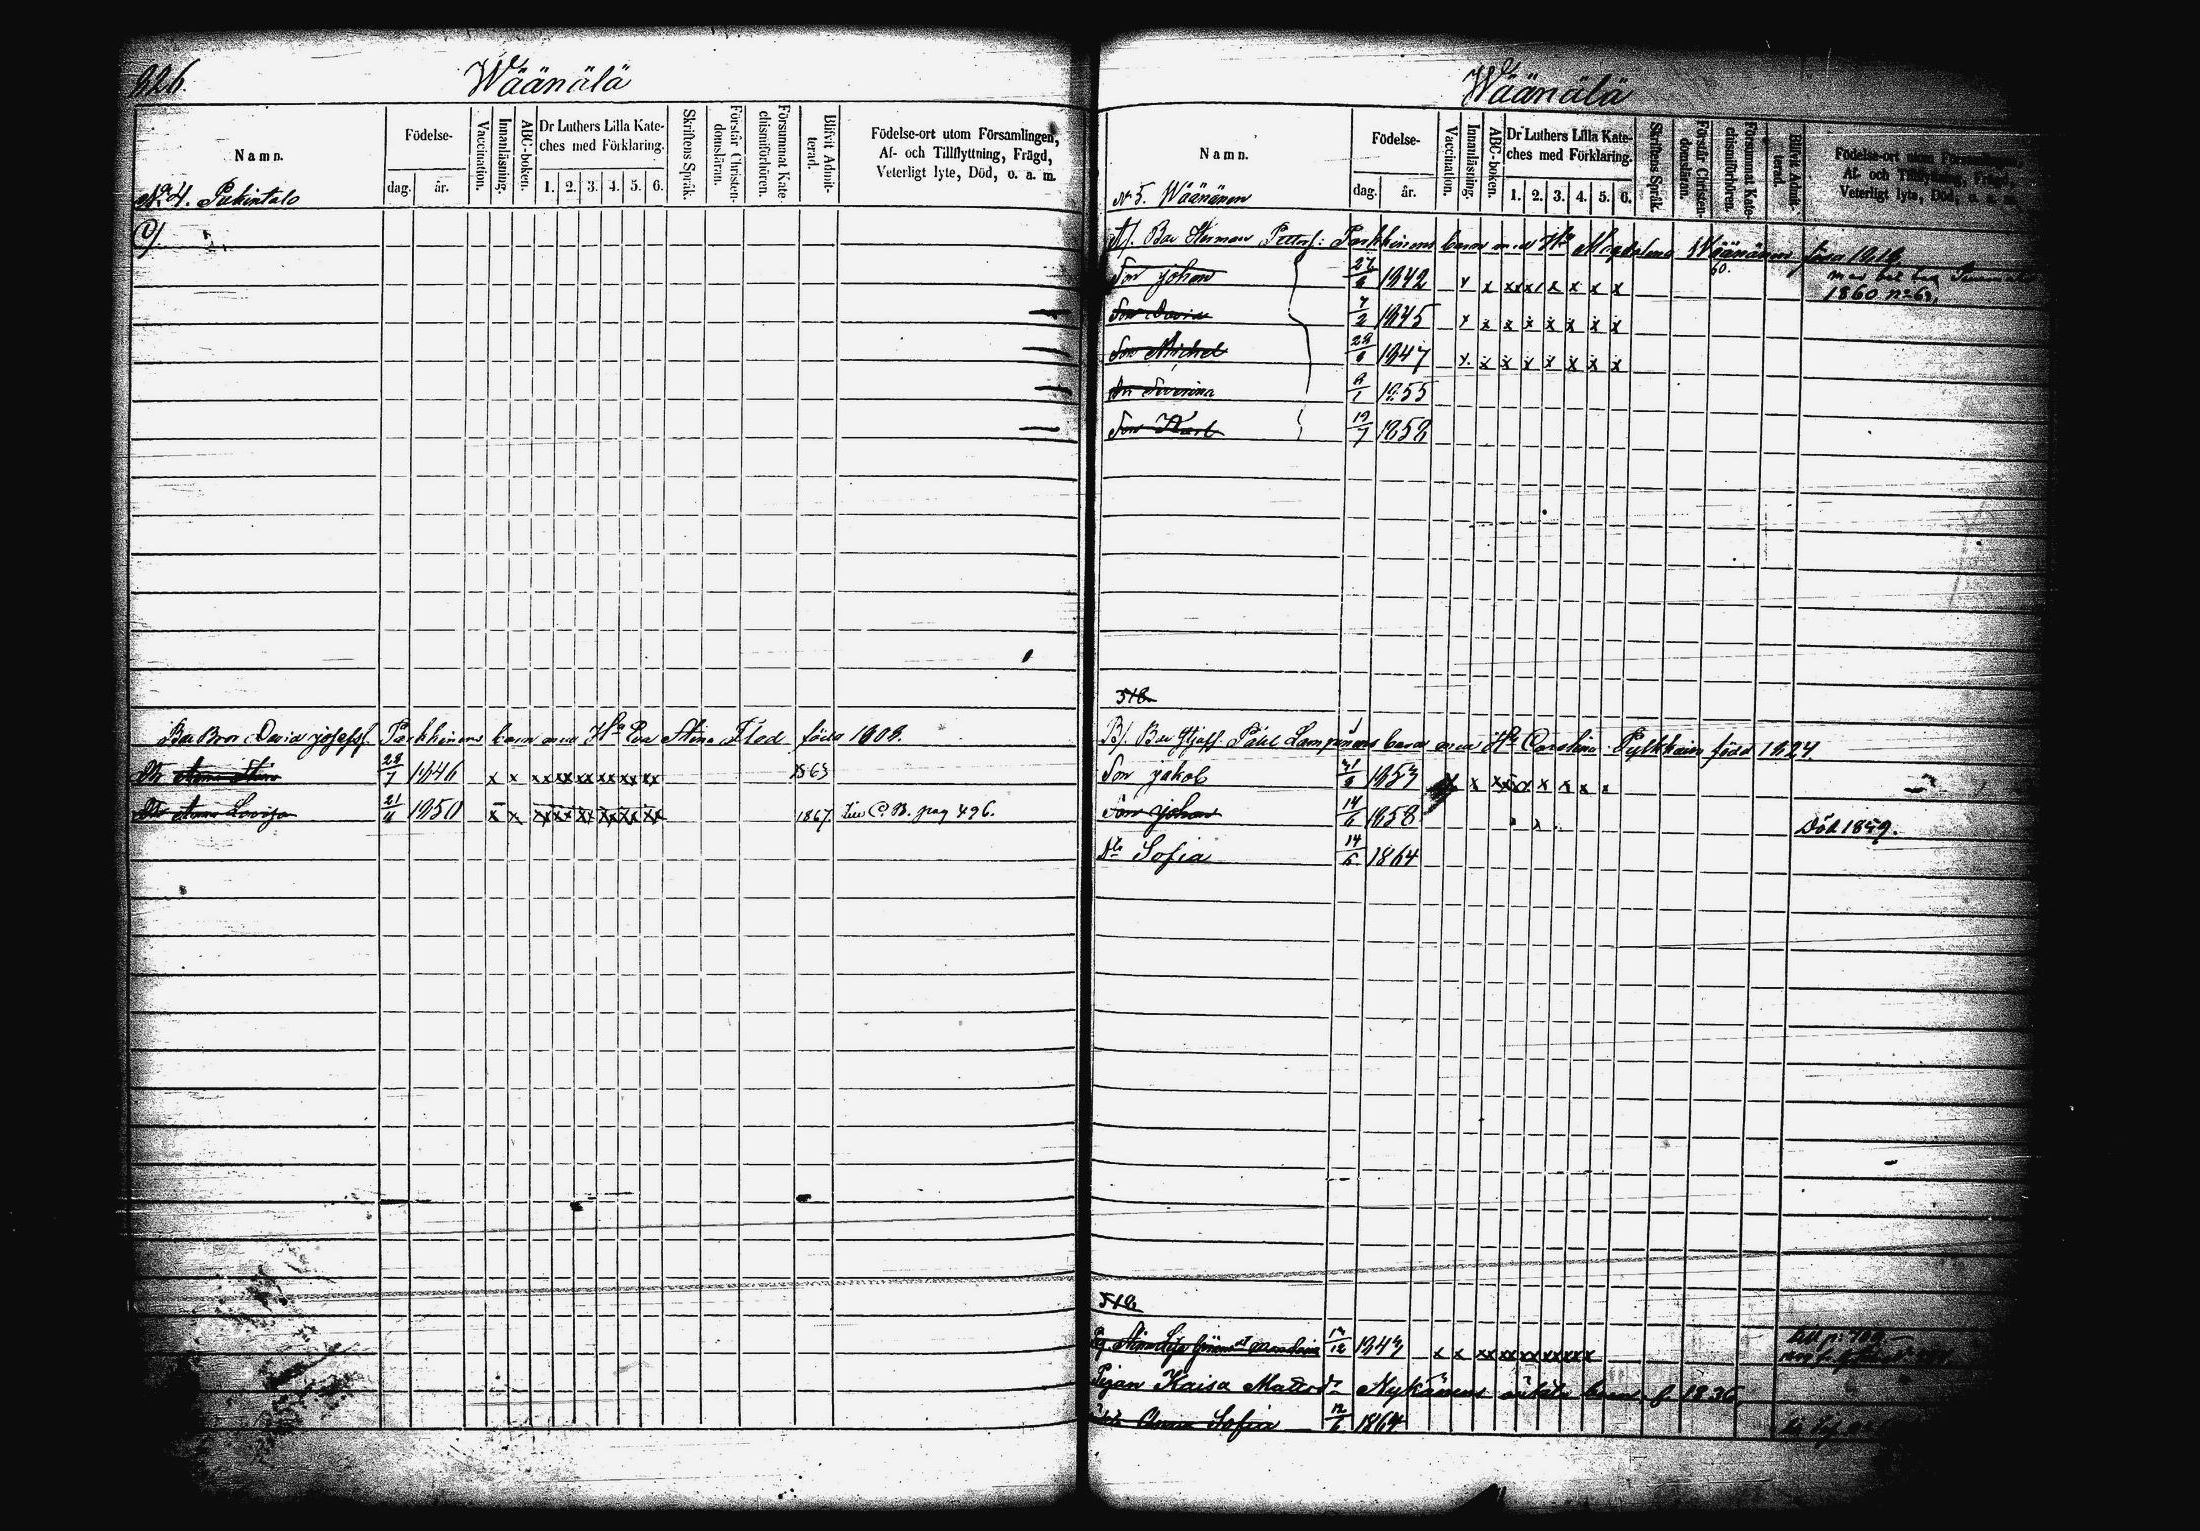 326.
Wäänälä
Namn.
Födelse-
dag.
år.
Vaccination.
Innanläsning.
ABC-boken.
Dr Luthers Lilla Kate-
ches med Förklaring.
1. 2. 3. 4. 5. 6.
Skriftens Språk.
Förstår Christen-
domsläran.
Försummat Kate-
chismiförhören.
Blifvit Admit-
terad.
Födelse-ort utom Församlingen,
Af- och Tillflyttning, Frägd,
Veterligt lyte, Död, o. a. m.
No 4. Pukintalo
C/.
Bo. Bror David Josefsf. Parkkinens barn med Hu Eva Stina Flod född 1808.
Dr Anna Stina 28/7 1846 x x xx xx xx xx xx xx 1863
Dr Anna Lovisa 21/4 1850 x x xx xx xx xx xx xx 1867. C. B. pag 496.
Wäänälä
Namn.
Födelse-
dag.
år.
Vaccination.
Innanläsning.
ABC-boken.
Dr Luthers Lilla Kate-
ches med Förklaring.
1. 2. 3. 4. 5. 6.
Skriftens Språk.
Förstår Christen-
domsläran.
Försummat Kate-
chismiförhören.
Blifvit Admit-
terad.
Födelse-ort utom Församlingen,
Af- och Tillflyttning, Frägd,
Veterligt lyte, Död, o. a. m.
No 5. Wäänänen
A/. Bo. Herman Petterf: Parkkinens barn med Hu Magdalena Wäänänen född 1818.
Son Johan 1842 x x xx x x x x x
1860 no 63.
Son David 7/2 1845 x x x x x x x x
Son Michel 1847 x x x x x x x x
Dr Severina 1855
Son Karl 19/7 1858
518
B/. Bo. Påhl Lampinens barn med Hu Carolina Pylkkäin född 1824.
Son Jakob 1853 x x x x x x
Son Johan 14/6 1858 Död 1859.
Dr Sofia 14/5 1864
518
12 1843 x x xx xx xx xx xx
Pigan Kaisa Mattsdr Nykänens oäkta barn f. 1836
Anna Sofia 12/6 1864